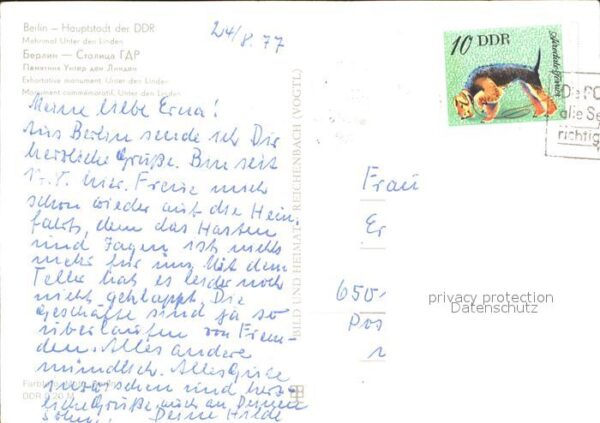 Berlin – Hauptstadt der DDR
Mahnmal Unter den Linden
Берлин – Столица ГДР
Памятник Унтер ден Линден
Exhortative monument Unter den Linden
Monument commémoratif, Unter den Linden
24/8.77
Meine liebe Erna!
Aus Berlin sende ich Dir
herzliche Grüße. Bin seit
hier. Freue mich
schon wieder auf die Heim-
fahrt, denn das Hasten
und Jagen ist nichts
mehr für uns. Mit dem
Teller hat es leider noch
nicht geklappt. Die
Geschäfte sind ja so
überlaufen von Frem-
den. Alles andere
mündlich. Alles Gute
inzwischen und herz-
liche Grüße, auch an Deinen
Sohn, Deine Hilde
DDR 0,20 M
BILD UND HEIMAT REICHENBACH (VOGTL)
10 DDR
Airedaleterrier
Die PO
alle Se
richtig
Frau
Er
650
Pos
privacy protection
Datenschutz